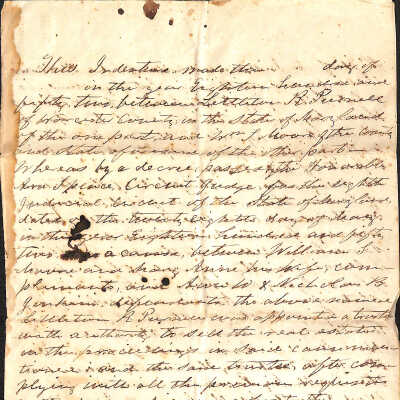 This Indenture made this day of
in the year Eighteen hundred and
fifty two, between Littleton R Purnell
of Worcester County in the State of Maryland
of the one part, and Wm J. Moore of the County
and State of the other part
Whereas by a decree passed by the Honorable
Circuit Judge of the eighth
Judicial Circuit of the State of Maryland
dated the day of
in the year Eighteen hundred and fifty
two in a cause, between William J
Moore and Mary Anne his wife, com-
plainants, and & Nicholas B
defendants the above named
Littleton R Purnell was appointed a trustee
with authority to sell the real estate
in the proceedings in said cause men-
tioned and the said trustee after com-
plying with all the previous requisites